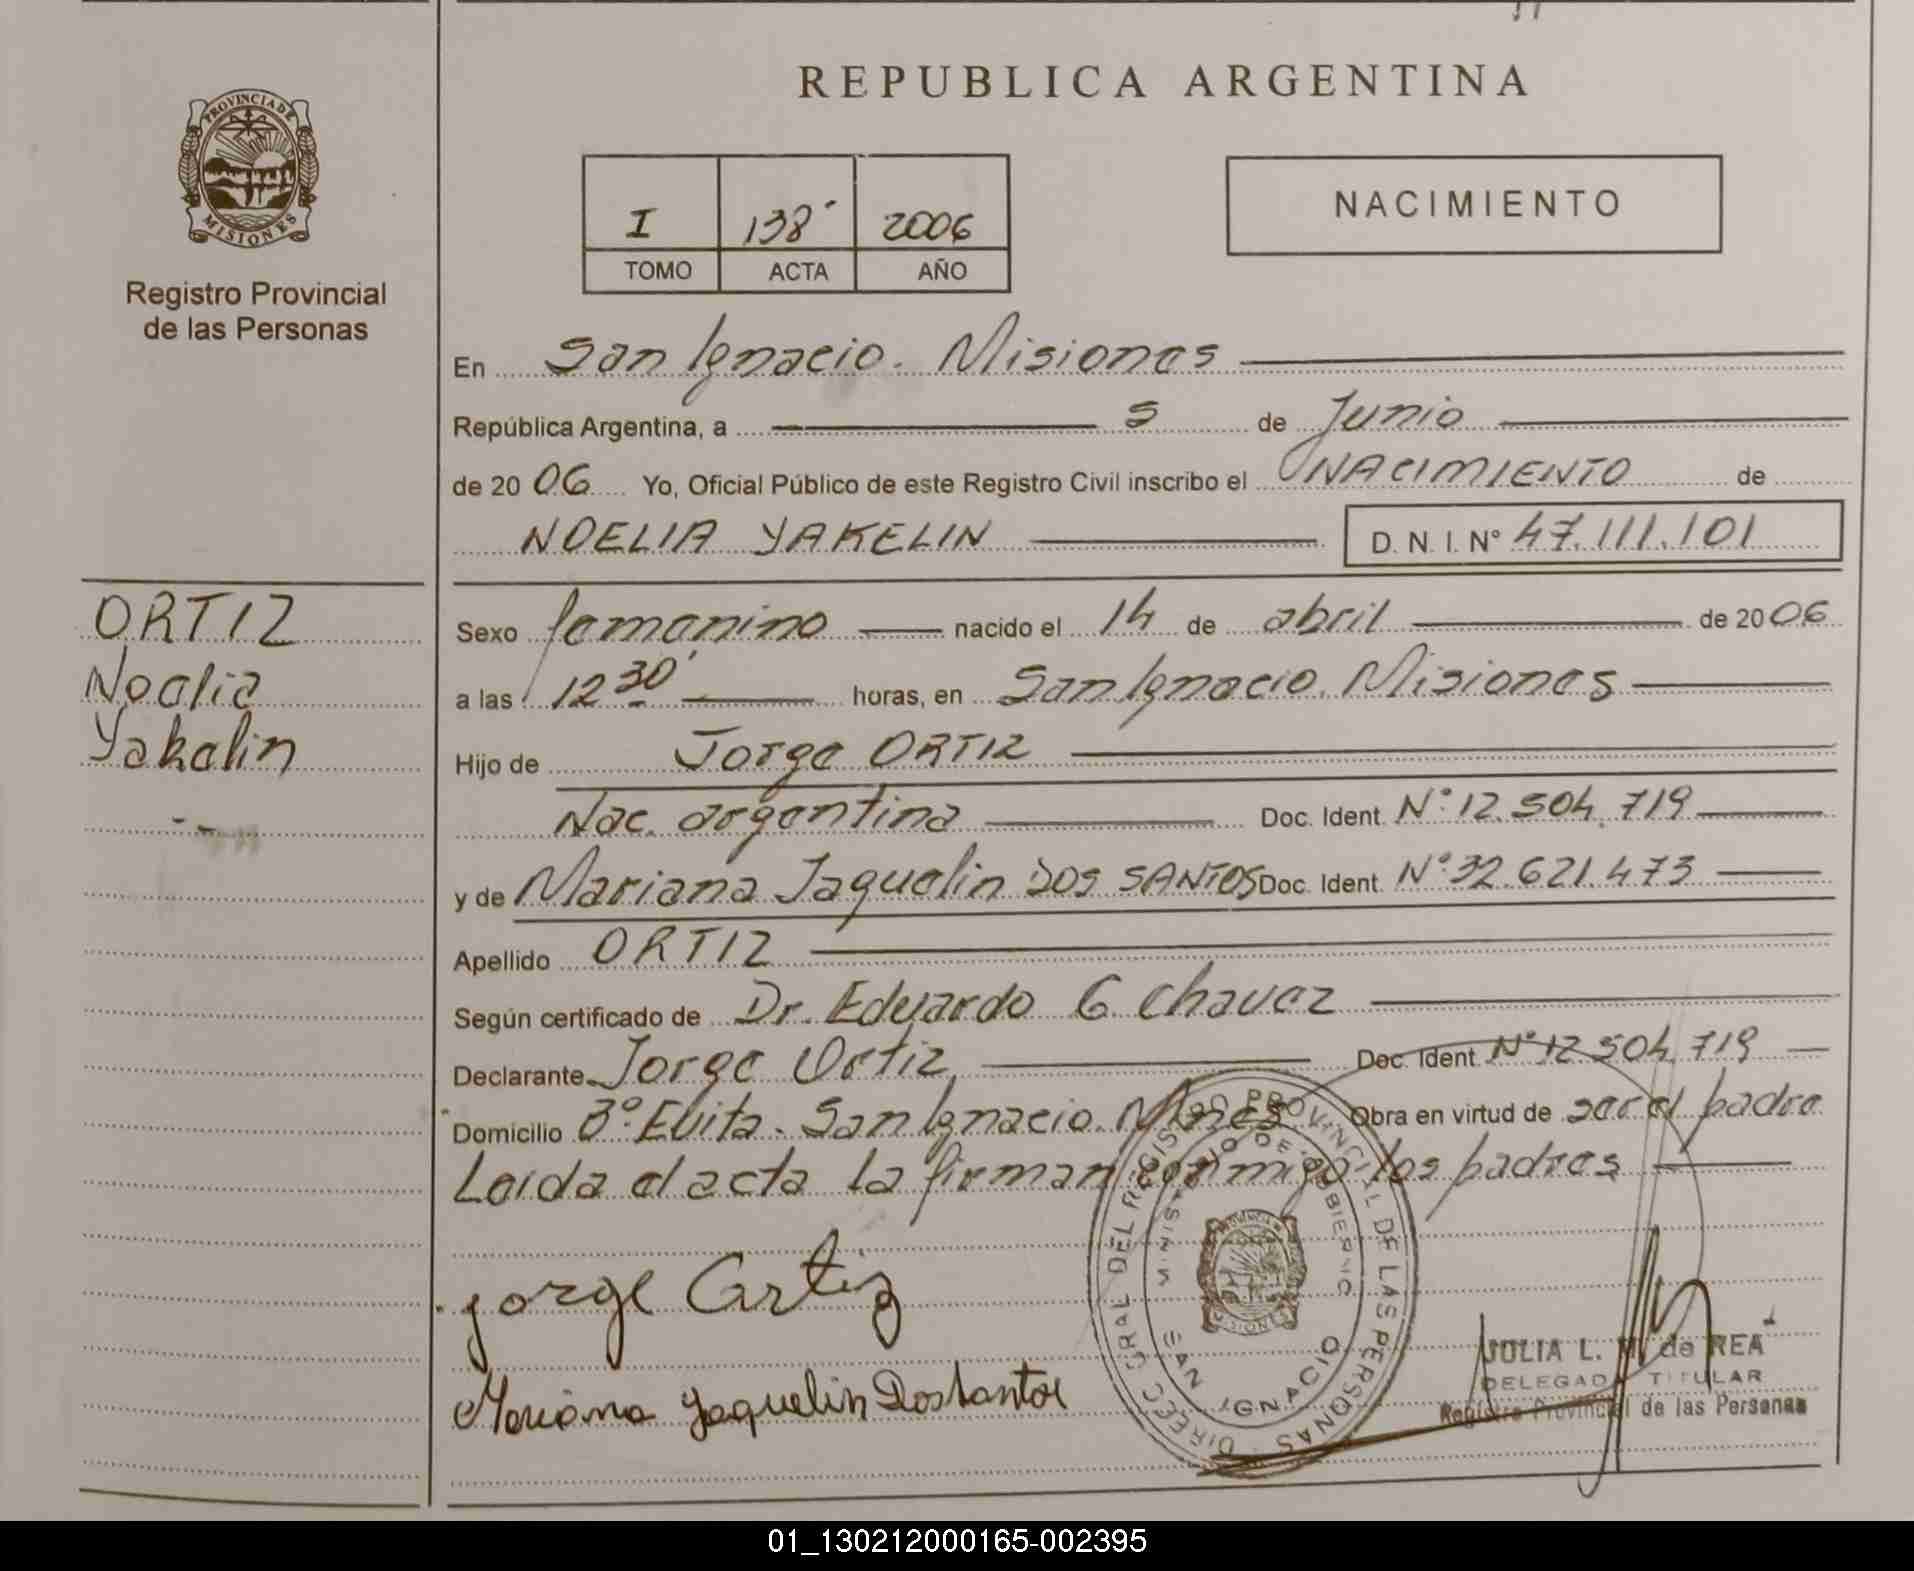 REPUBLICA ARGENTINA
PROVINCIA DE
MISIONES
Registro Provincial
de las Personas
I 138 2006
TOMO ACTA AÑO
NACIMIENTO
En San Ignacio. Misiones
República Argentina, a 5 de Junio
de 2006 Yo, Oficial Público de este Registro Civil inscribo el NACIMIENTO de
NOELIA YAKELIN D. N. I. Nº 47.111.101
ORTIZ
Noelia
Yakelin
Sexo femenino nacido el 14 de abril de 2006
a las 12 30' horas, en San Ignacio. Misiones
Hijo de Jorge ORTIZ
Nac. argentina Doc. Ident. Nº 12.504.719
y de Mariana Jaquelin DOS SANTOS Doc. Ident. Nº 32.621.473
Apellido ORTIZ
Según certificado de Dr. Eduardo G. Chavez
Declarante Jorge Ortiz Doc. Ident. Nº 12.504.719
Domicilio Bº Evita. San Ignacio. Mnes Obra en virtud de ser el padre
Leida el acta la firman conmigo los padres
Jorge Ortiz
Mariana Jaquelin Dos Santos
DIREC. GRAL DEL REGISTRO PROVINCIAL DE LAS PERSONAS
MINISTERIO DE GOBIERNO
SAN IGNACIO
MISIONES
JULIA L. M. de REA
DELEGADA TITULAR
Registro Provincial de las Personas
01_130212000165-002395